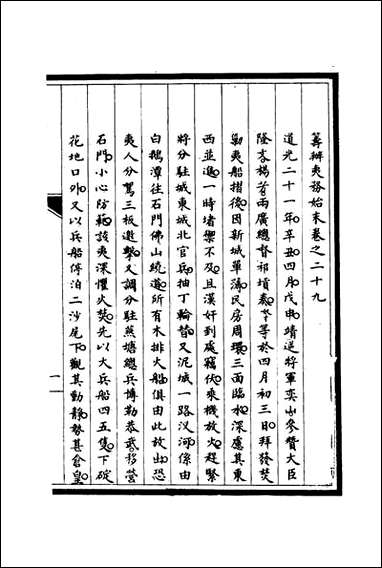 籌辦夷務始末卷之二十九
道光二十一年辛丑四月戊申靖逆將軍奕山參贊大臣
隆文楊芳兩廣總督祁𡎴奏奴才等於四月初三日拜發焚
勦夷船摺後因新城單薄民房周環三面臨水深慮其東
西並進一時堵禦不及且漢奸到處竊伏乘機放火趕緊
將分駐城東城北官兵抽丁輪替又泥城一路汊河係由
白鵝潭往石門佛山繞道所有木排火船俱由此放出恐
夷人分駕三板邀擊又調分駐燕塘總兵博勒恭武移營
石門小心防範該夷深懼火焚先以大兵船四五隻下碇
花地口外又以兵船停泊二沙尾下觀其動靜勢甚倉皇
一